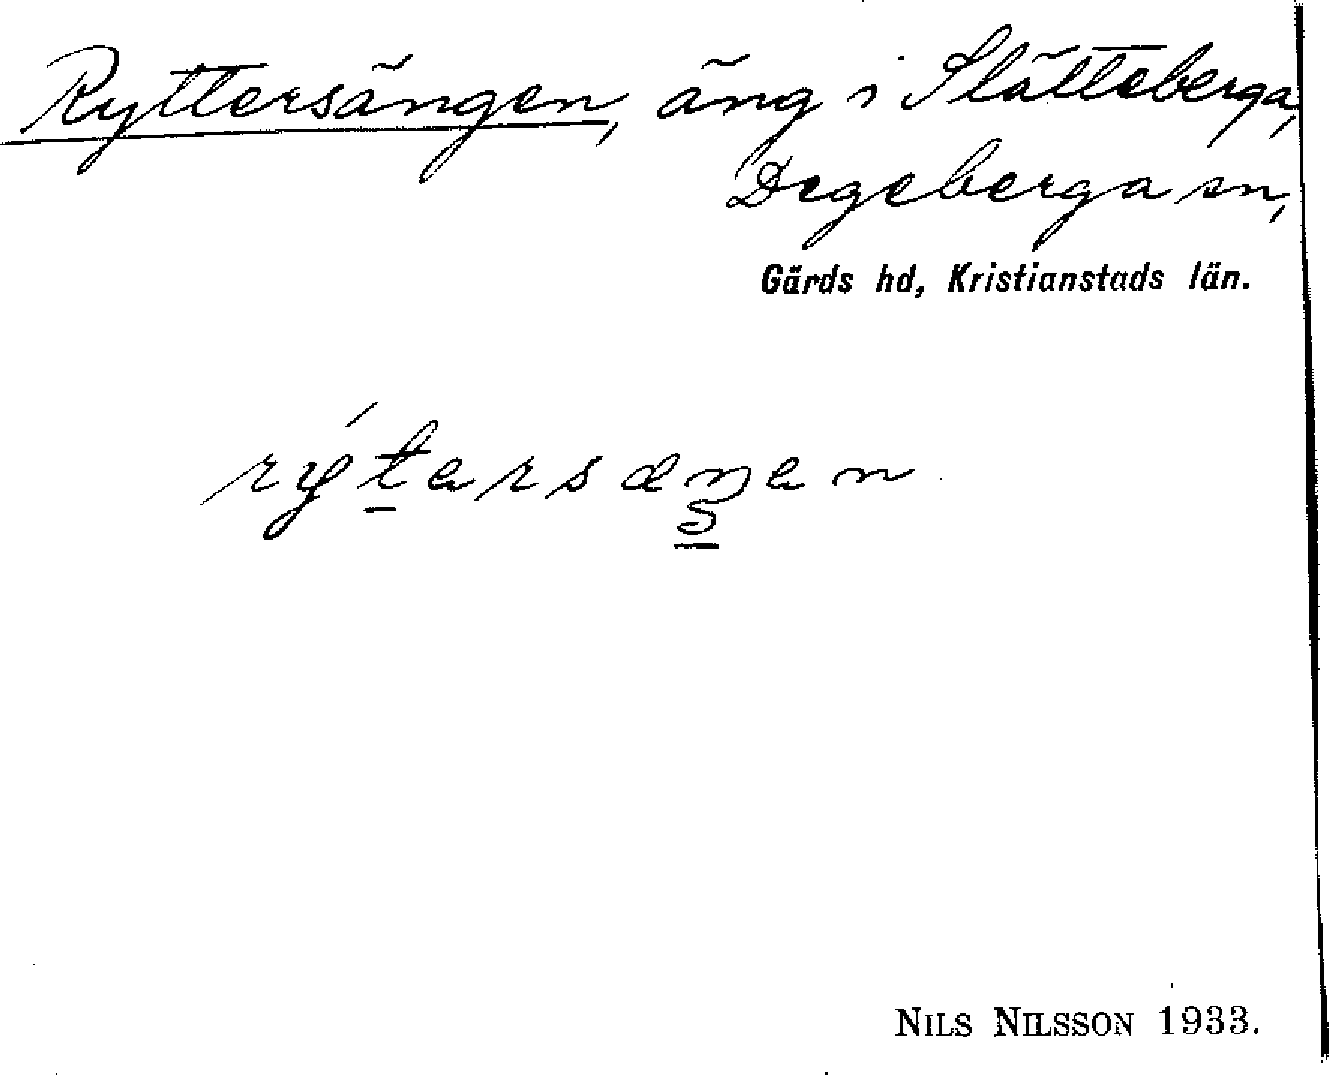 Ryttersängen, äng i Slätteberga,
Degeberga sn,
Gärds hd, Kristianstads län.
rýtarsæŋen
NILS NILSSON 1933.